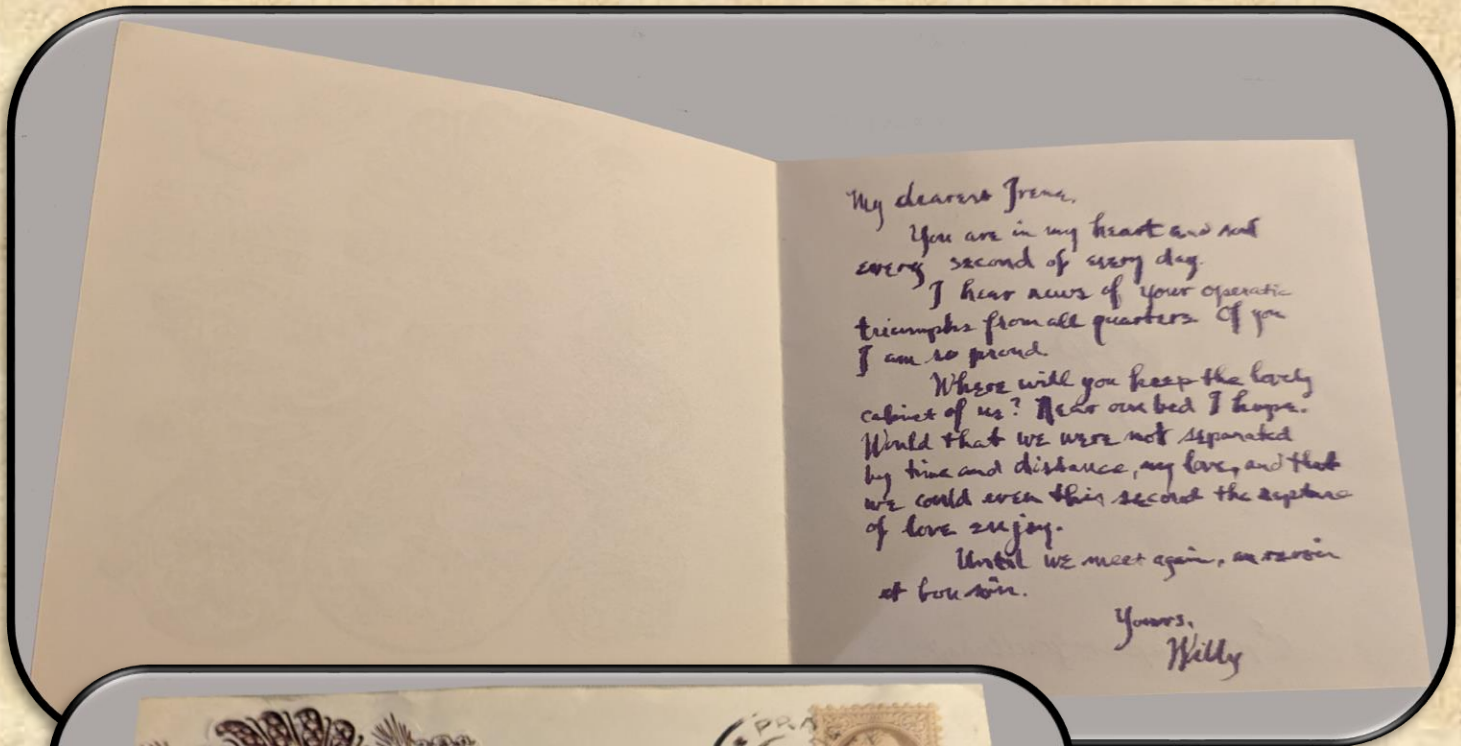 My dearest Irene,
You are in my heart and soul
every second of every day.
I hear news of your operatic
triumphs from all quarters. Of you
I am so proud.
Where will you keep the lovely
cabinet of us? Near our bed I hope.
Would that we were not separated
by time and distance, my love, and that
we could even this second the rapture
of love enjoy.
Until we meet again, au revoir
et bon soir.
Yours,
Willy